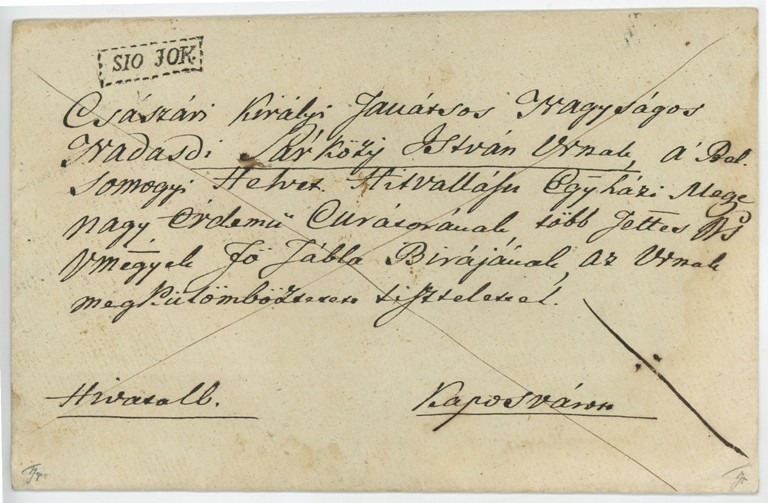 SIO JOK
Császári Királyi Tanátsos Nagyságos
Nadasdi Sárközÿ István Urnak, á Bel.
Somogyi Helvet. Hitvallásu Egÿházi Megÿe
nagy Érdemű Curátorának több Jettes Ns
Vmégyek Fö Tábla Birájának, Az Urnak
megkülömböztetett tisztelettel.
Hivatalb. Kaposváron